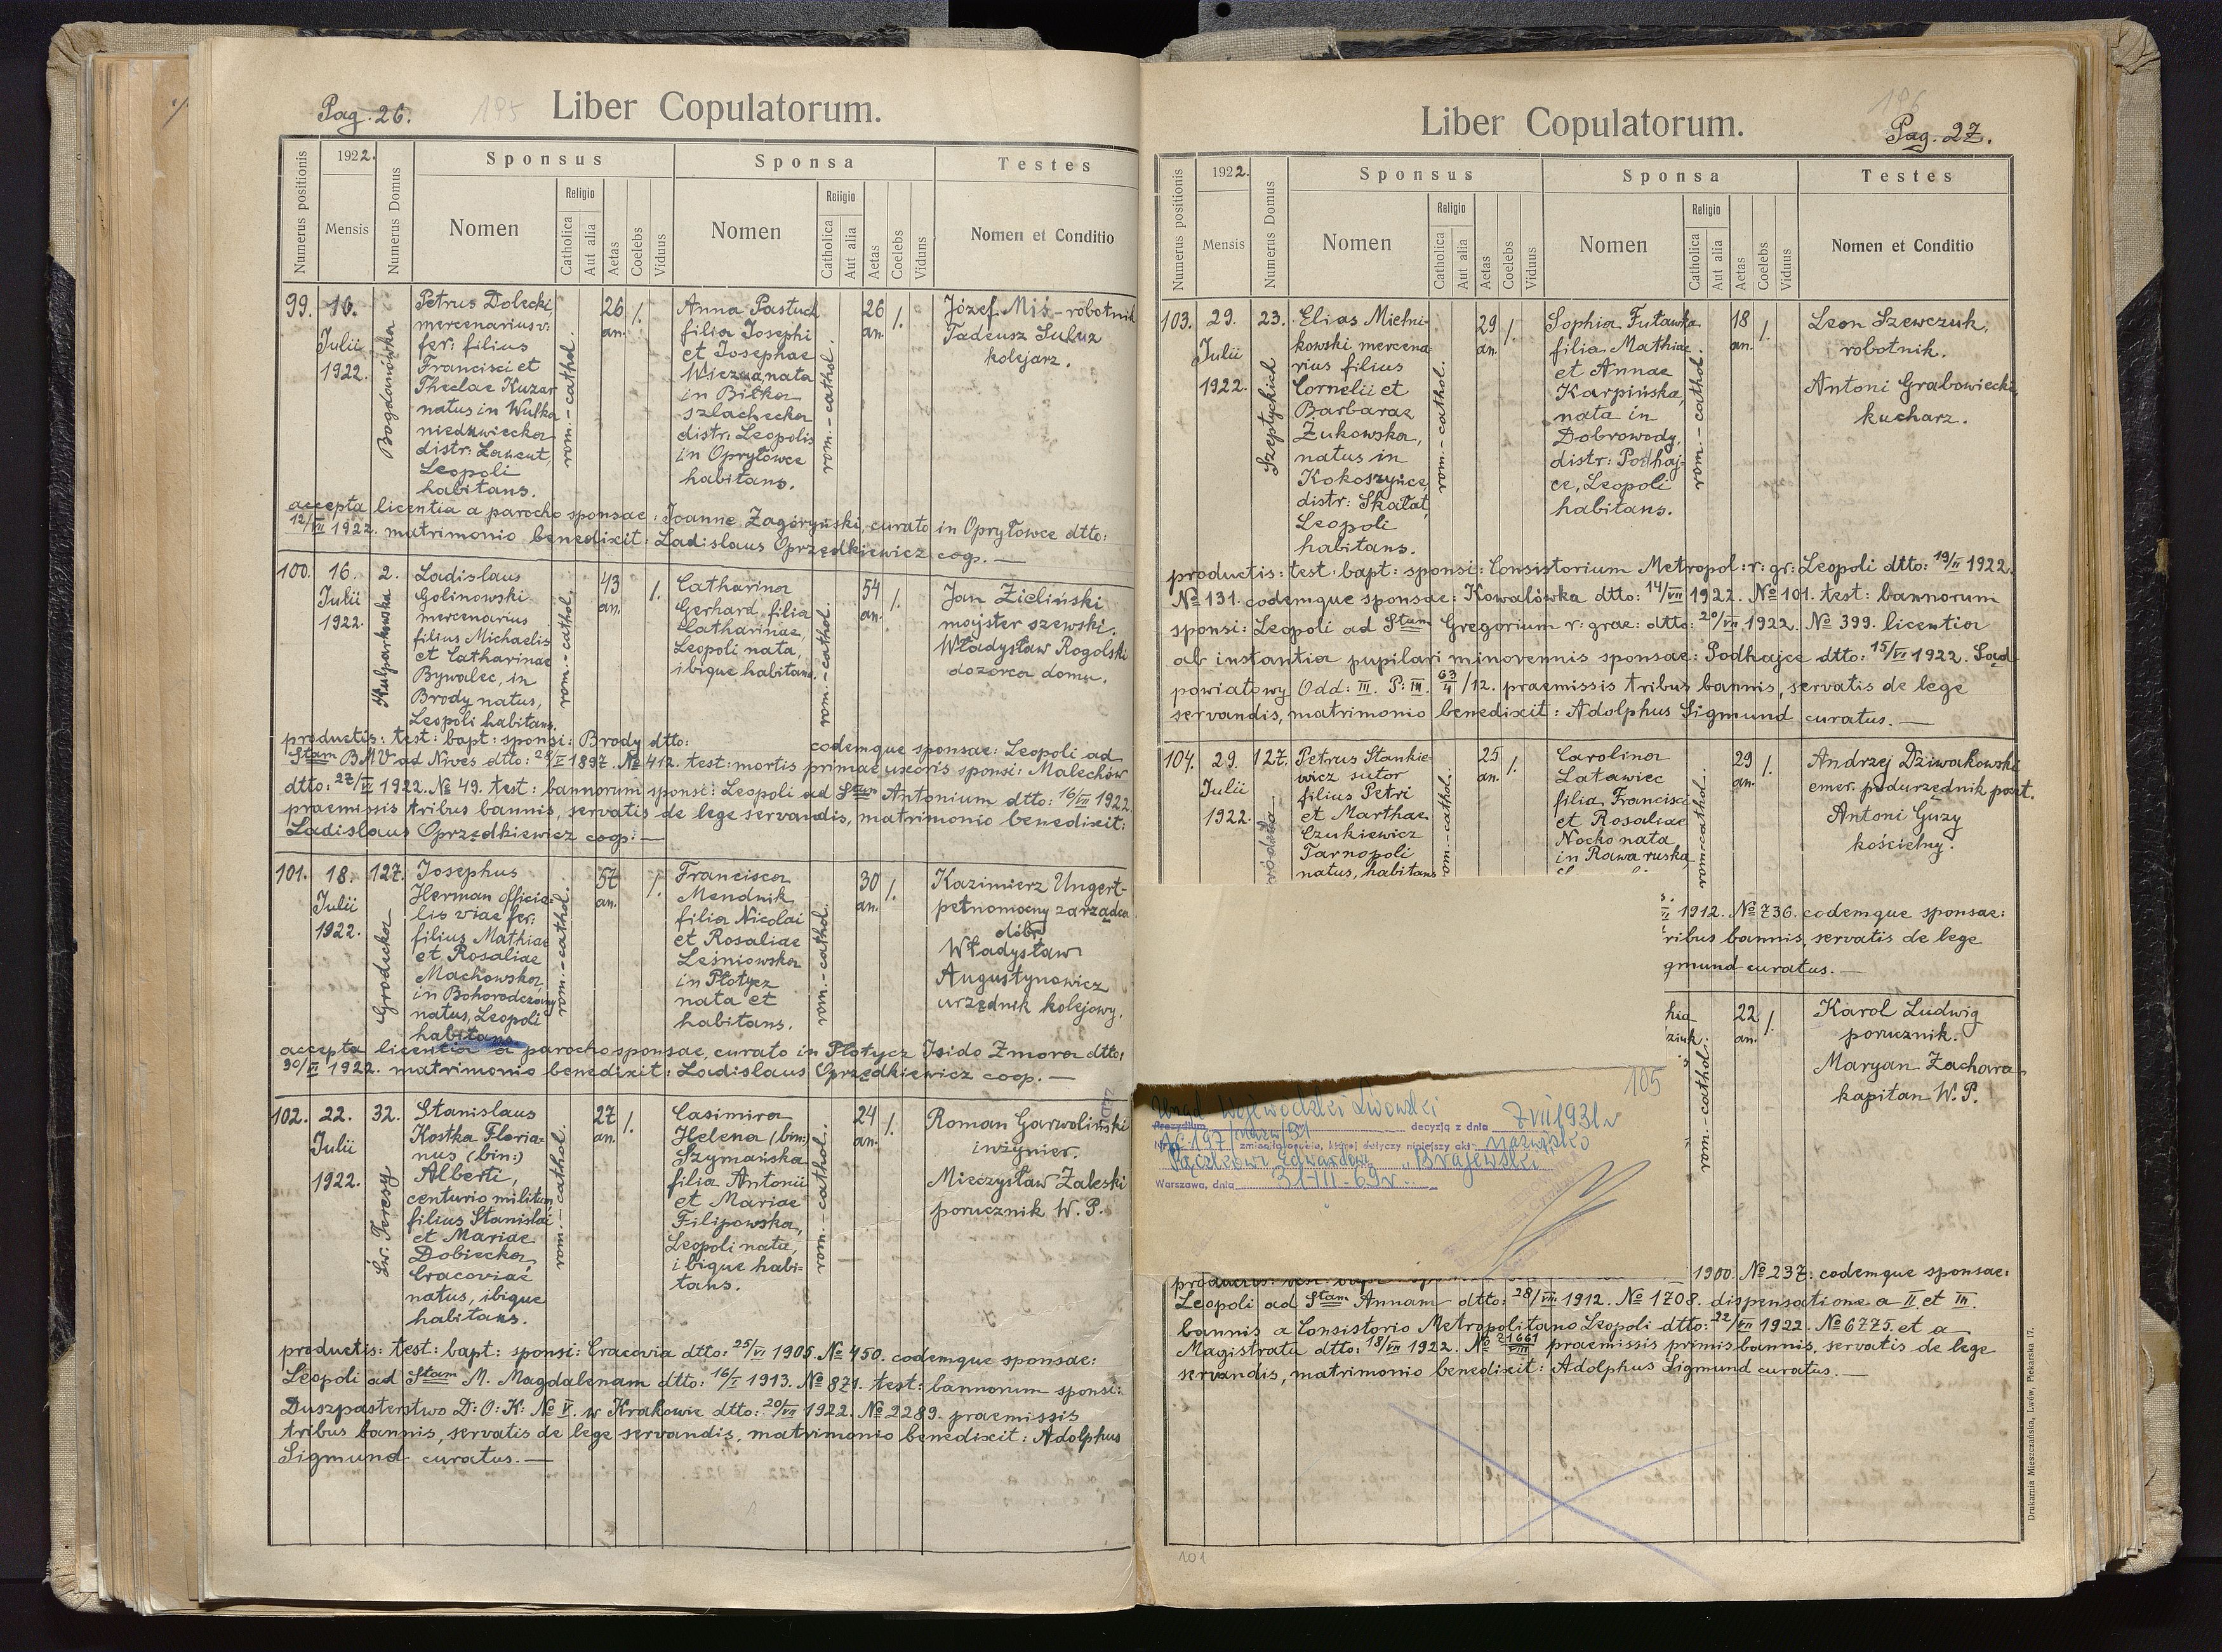 Pag. 26.
195
Liber Copulatorum.
Numerus positionis
1922.
Mensis
Numerus Domus
Sponsus
Nomen
Religio
Catholica
Aut alia
Aetas
Coelebs
Viduus
Sponsa
Nomen
Religio
Catholica
Aut alia
Aetas
Coelebs
Viduus
Testes
Nomen et Conditio
99.
16.
Julii
1922.
Bogdanówka
Petrus Dolecki,
mercenarius v.
fer: filius
Francisci et
Theclae Kuzar
natus in Wulka
niedźwiecka
distr: Łancut,
Leopoli
habitans.
rom.-cathol.
26
an.
1.
Anna Pastuch
filia Josephi
et Josephae
nata
in Biłka
szlachecka
distr: Leopolis
in Opryłowce
habitans.
rom.-cathol.
26
an.
1.
Józef Miś - robotnik
Tadeusz Suluz
kolejarz.
accepta licentia a parocho sponsae: Joanne Zagóryński, curato in Opryłowce dtto:
12/VII 1922. matrimonio benedixit: Ladislaus Oprzędkiewicz cog. —
100.
16.
Julii
1922.
2.
Kulparkowska
Ladislaus
Golinowski
mercenarius
filius Michaelis
et Catharinae
Bywalec, in
Brody natus,
Leopoli habitans.
rom.-cathol.
43
an.
1.
Catharina
Gerhard, filia
Catharinae,
Leopoli nata,
ibique habitans.
rom.-cathol.
54
an.
1.
Jan Zieliński
majster szewski.
Władysław Rogolski
dozorca domu.
productis: test: bapt: sponsi: Brody dtto: eodemque sponsae: Leopoli ad
Stam B.M.V. ad Nives dtto: 1897. No 412. test: mortis primae uxoris sponsi: Malechów
dtto: 1922. No 49. test: bannorum sponsi: Leopoli ad Stum Antonium dtto: 16/VII 1922.
praemissis tribus bannis, servatis de lege servandis, matrimonio benedixit:
Ladislaus Oprzędkiewicz cog: —
101.
18.
Julii
1922.
127.
Grodecka
Josephus
Herman officia-
lis viae fer.
filius Mathiae
et Rosaliae
Machowska,
in Bohorodczany
natus, Leopoli
habitans
rom.-cathol.
57
an.
1.
Francisca
Mendnik
filia Nicolai
et Rosaliae
Leśniowska
in Płotycz
nata et
habitans.
rom.-cathol.
30
an.
1.
Kazimierz Ungert-
pełnomocny zarządca
dóbr
Władysław
Augustynowicz
urzędnik kolejowy.
accepta licentia a parocho sponsae, curato in Płotycz Isido Zmora dtto:
30/VI 1922. matrimonio benedixit: Ladislaus Oprzędkiewicz coop. —
102.
22.
Julii
1922.
32.
Św. Teresy
Stanislaus
Kostka Floria-
nus (bin:)
Alberti,
centurio militum
filius Stanislai
et Mariae
Dobiecka,
Cracoviae
natus, ibique
habitans.
rom.-cathol.
27
an.
1.
Casimira
Helena (bin:)
Szymańska
filia Antonii
et Mariae
Filipowska,
Leopoli nata,
ibique habi-
tans.
rom.-cathol.
24
an.
1.
Roman Garwoliński
inżynier.
Mieczysław Zaleski
porucznik W. P.
productis: test: bapt: sponsi: Cracovia dtto: 25/VI 1905. No 450. eodemque sponsae:
Leopoli ad Stam M. Magdalenam dtto: 16/I 1913. No 871. test: bannorum sponsi:
Duszpasterstwo D: O: K: No V. w Krakowie dtto: 20/VII 1922. No 2289. praemissis
tribus bannis, servatis de lege servandis, matrimonio benedixit: Adolphus
Sigmund curatus. —
196
Liber Copulatorum.
Pag. 27.
Numerus positionis
1922.
Mensis
Numerus Domus
Sponsus
Nomen
Religio
Catholica
Aut alia
Aetas
Coelebs
Viduus
Sponsa
Nomen
Religio
Catholica
Aut alia
Aetas
Coelebs
Viduus
Testes
Nomen et Conditio
103.
29.
Julii
1922.
23.
Szeptyckich
Elias Mielni-
kowski mercena-
rius filius
Cornelii et
Barbarae
Żukowska,
natus in
Kokoszyńce,
distr: Skałat,
Leopoli
habitans.
rom.-cathol.
29
an.
1.
Sophia Futawka
filia Mathiae
et Annae
Karpińska,
nata in
Dobrowody,
distr: Podhaj-
ce, Leopoli
habitans.
rom.-cathol.
18
an.
1.
Leon Szewczuk,
robotnik.
Antoni Grabowiecki,
kucharz.
productis: test: bapt: sponsi: Consistorium Metropol: r: gr: Leopoli dtto: 1922.
No 131. eodemque sponsae: Kowalówka dtto: 14/VII 1922. No 101. test: bannorum
sponsi: Leopoli ad Stum Gregorium r: grae: dtto: 20/VII 1922. No 399. licentia
ab instantia pupilari minorennis sponsae: Podhajce dtto: 15/VII 1922. Sąd
powiatowy Odd: III. P: III. 63/4/12. praemissis tribus bannis, servatis de lege
servandis, matrimonio benedixit: Adolphus Sigmund curatus. —
104.
29.
Julii
1922.
127.
Petrus Stankie-
wicz sutor
filius Petri
et Marthae
Czukiewicz
Tarnopoli
natus, habitans
rom.-cathol.
25
an.
1.
Carolina
Latawiec
filia Francisci
et Rosaliae
Nocko nata
in Rawa ruska,
rom.-cathol.
29
an.
1.
Andrzej Dziwakowski
emer. podurzędnik poczt.
Antoni Guzy
kościelny.
1912. No 736. eodemque sponsae:
ribus bannis, servatis de lege
gmund curatus. —
22
an.
1.
rom.-cathol.
Karol Ludwig
porucznik.
Maryan Zachara
kapitan W. P.
105
Urząd Wojewódzki Lwowski
Prezydium
decyzją z dnia 7 VII 1931 r
zmienił osobie, której dotyczy niniejszy akt nazwisko
Pączkowi Edwardowi "Brajewski"
Warszawa, dnia 31 VII. 69 r.
1900. No 237. eodemque sponsae:
Leopoli ad Stam Annam dtto: 28/VII 1912. No 1708. dispensatione a II et III.
bannis a Consistorio Metropolitano Leopoli dtto: 22/VII 1922. No 6775. et a
Magistratu dtto: 18/VII 1922. No 21661/VIII praemissis primis bannis, servatis de lege
servandis, matrimonio benedixit: Adolphus Sigmund curatus. —
101
Drukarnia Mieszczańska, Lwów, Piekarska 17.